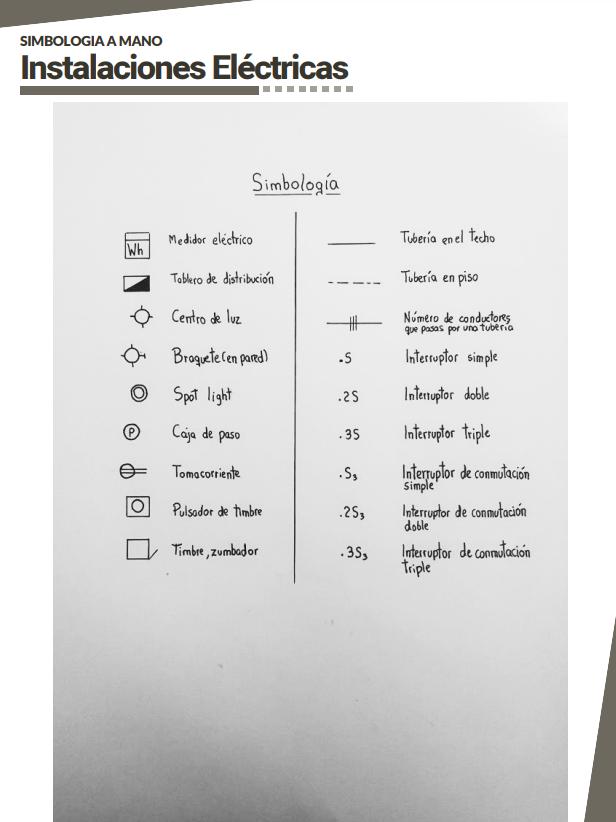 SIMBOLOGIA A MANO
Instalaciones Eléctricas
Simbología
Wh
Medidor eléctrico
Tablero de distribución
Centro de luz
Braquete (en pared)
Spot light
P
Caja de paso
Tomacorriente
Pulsador de timbre
Timbre, zumbador
Tubería en el techo
Tubería en piso
Número de conductores
que pasas por una tubería
.S
Interruptor simple
.2S
Interruptor doble
.3S
Interruptor triple
.S₃
Interruptor de conmutación
simple
.2S₃
Interruptor de conmutación
doble
.3S₃
Interruptor de conmutación
triple